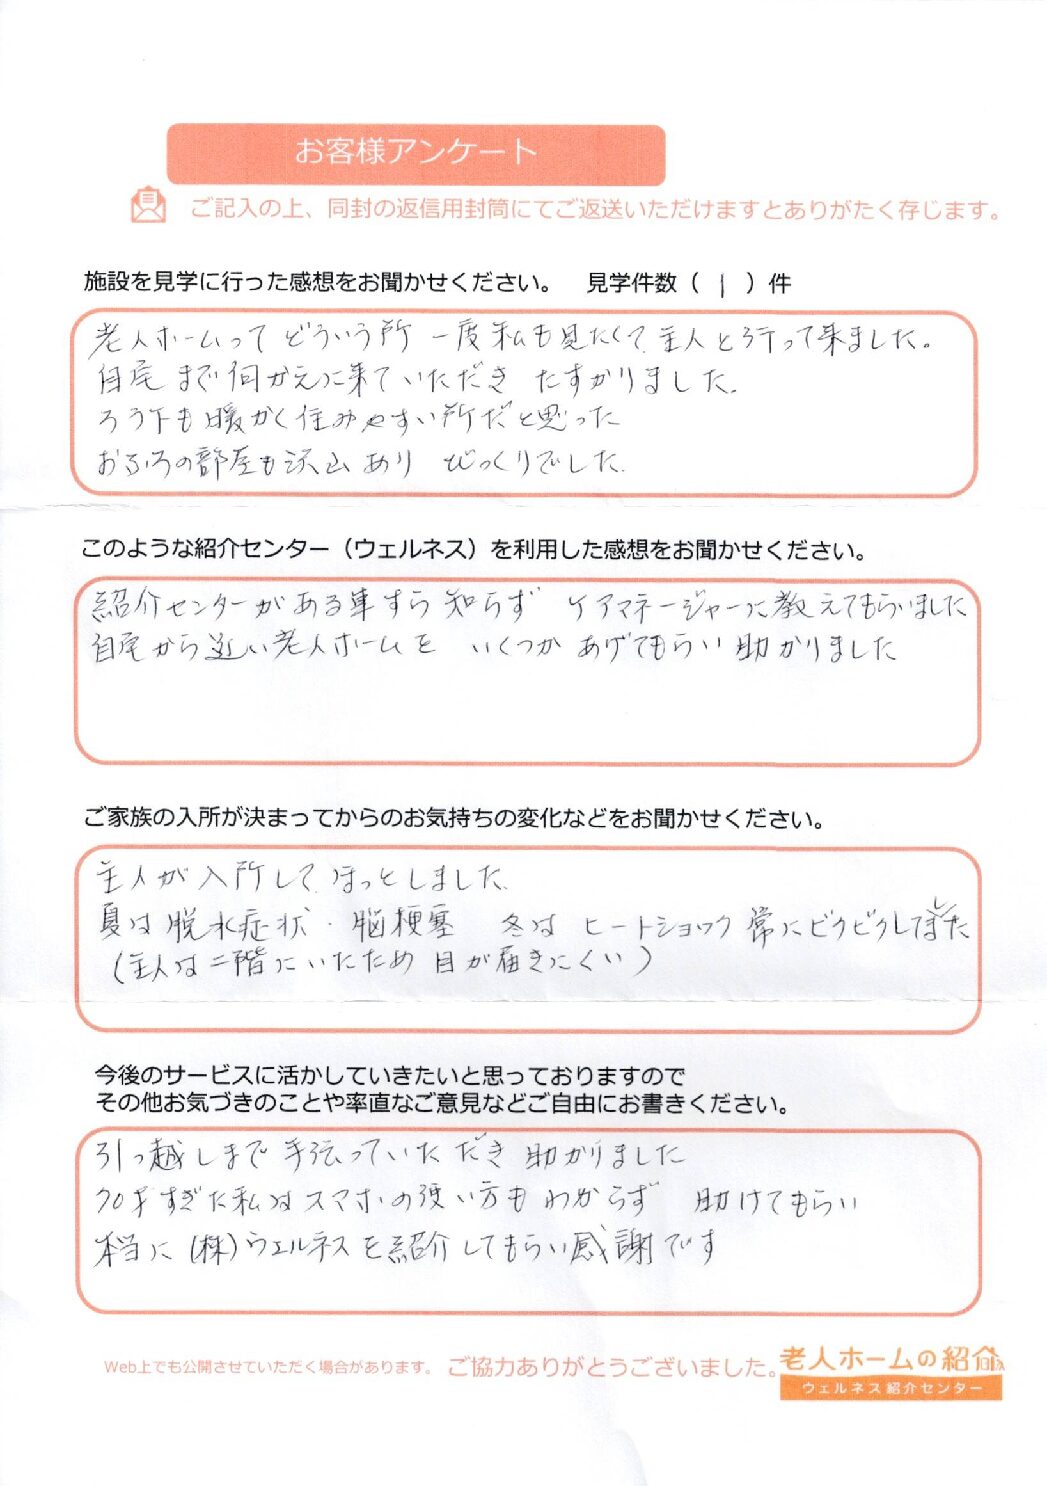 お客様アンケート
ご記入の上、同封の返信用封筒にてご返送いただけますとありがたく存じます。
施設を見学に行った感想をお聞かせください。 見学件数（ 1 ）件
老人ホームって どういう所 一度私も見たくて 主人と行って来ました。
自宅まで 何かえに来ていただき たすかりました。
ろう下も暖かく住みやすい所だと思った
おふろの部屋も沢山あり びっくりでした。
このような紹介センター（ウェルネス）を利用した感想をお聞かせください。
紹介センターがある事すら 知らず ケアマネージャーに教えてもらいました
自宅から近い老人ホームを いくつか あげてもらい 助かりました
ご家族の入所が決まってからのお気持ちの変化などをお聞かせください。
主人が入所して ほっとしました。
夏は 脱水症状・脳梗塞 冬は ヒートショック 常にビクビクしてました
（主人は二階にいたため 目が届きにくい）
今後のサービスに活かしていきたいと思っておりますので
その他お気づきのことや率直なご意見などご自由にお書きください。
引っ越しまで 手伝っていただき 助かりました
70才すぎた私はスマホの使い方もわからず 助けてもらい
本当に（株）ウェルネスを紹介してもらい感謝です
Web上でも公開させていただく場合があります。 ご協力ありがとうございました。
老人ホームの紹介
ウェルネス紹介センター